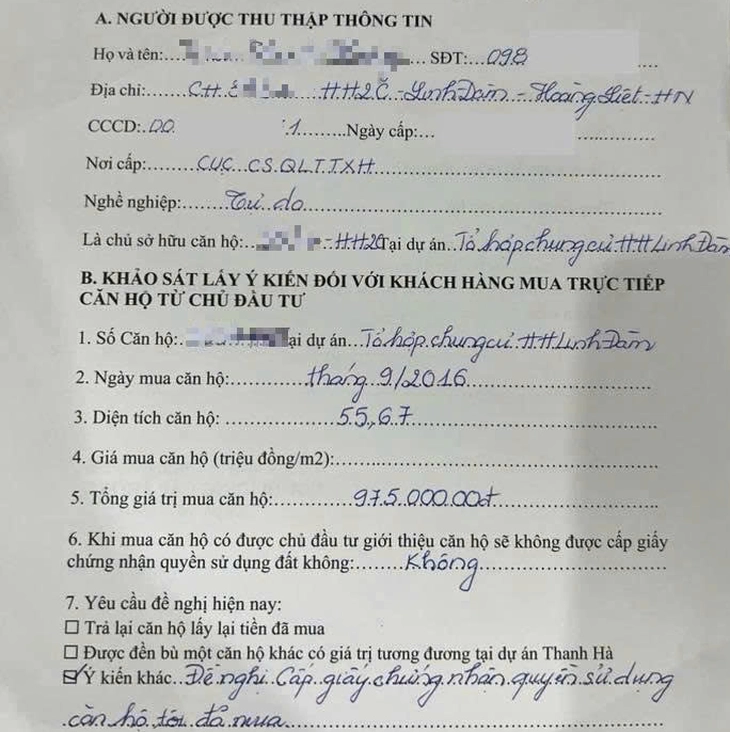 A. NGƯỜI ĐƯỢC THU THẬP THÔNG TIN
Họ và tên:............ SĐT:...098 ....
Địa chỉ:......CH. HH2C - Linh Đàm - Hoàng Liệt - HN
CCCD:.00. 1.......Ngày cấp:... ...............
Nơi cấp:........CỤC. CS.QLTTXH..........
Nghề nghiệp:.......Tự..do..........
Là chủ sở hữu căn hộ:.. - HH2C Tại dự án..Tổ hợp chung cư HH Linh Đàm
B. KHẢO SÁT LẤY Ý KIẾN ĐỐI VỚI KHÁCH HÀNG MUA TRỰC TIẾP
CĂN HỘ TỪ CHỦ ĐẦU TƯ
1. Số Căn hộ:. ại dự án...Tổ hợp chung cư HH Linh Đàm
2. Ngày mua căn hộ:............tháng 9/2016..........
3. Diện tích căn hộ: ................55,67..........
4. Giá mua căn hộ (triệu đồng/m2):..........
5. Tổng giá trị mua căn hộ:............975.000.00đ..........
6. Khi mua căn hộ có được chủ đầu tư giới thiệu căn hộ sẽ không được cấp giấy
chứng nhận quyền sử dụng đất không:.......Không..........
7. Yêu cầu đề nghị hiện nay:
☐ Trả lại căn hộ lấy lại tiền đã mua
☐ Được đền bù một căn hộ khác có giá trị tương đương tại dự án Thanh Hà
☑ Ý kiến khác..Đề nghị Cấp giấy chứng nhận quyền sử dụng
căn hộ tôi đã mua..........